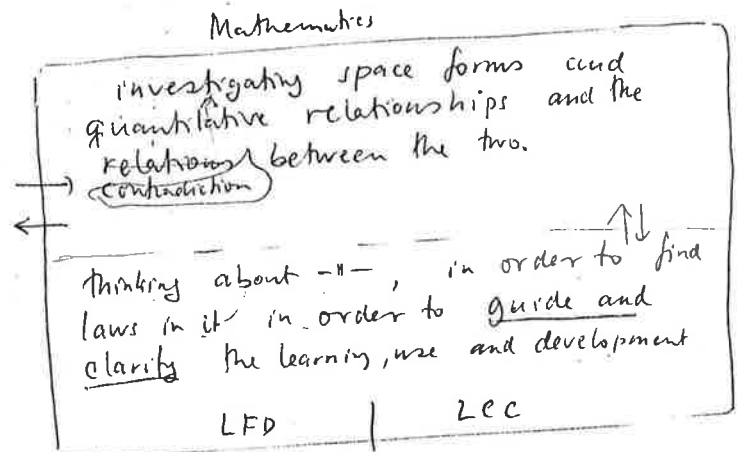 Mathematics
investigating space forms and
quantitative relationships and the
relations between the two.
contradiction
thinking about -"-, in order to find
laws in it in order to guide and
clarify the learning, use and development
LFD | LCC